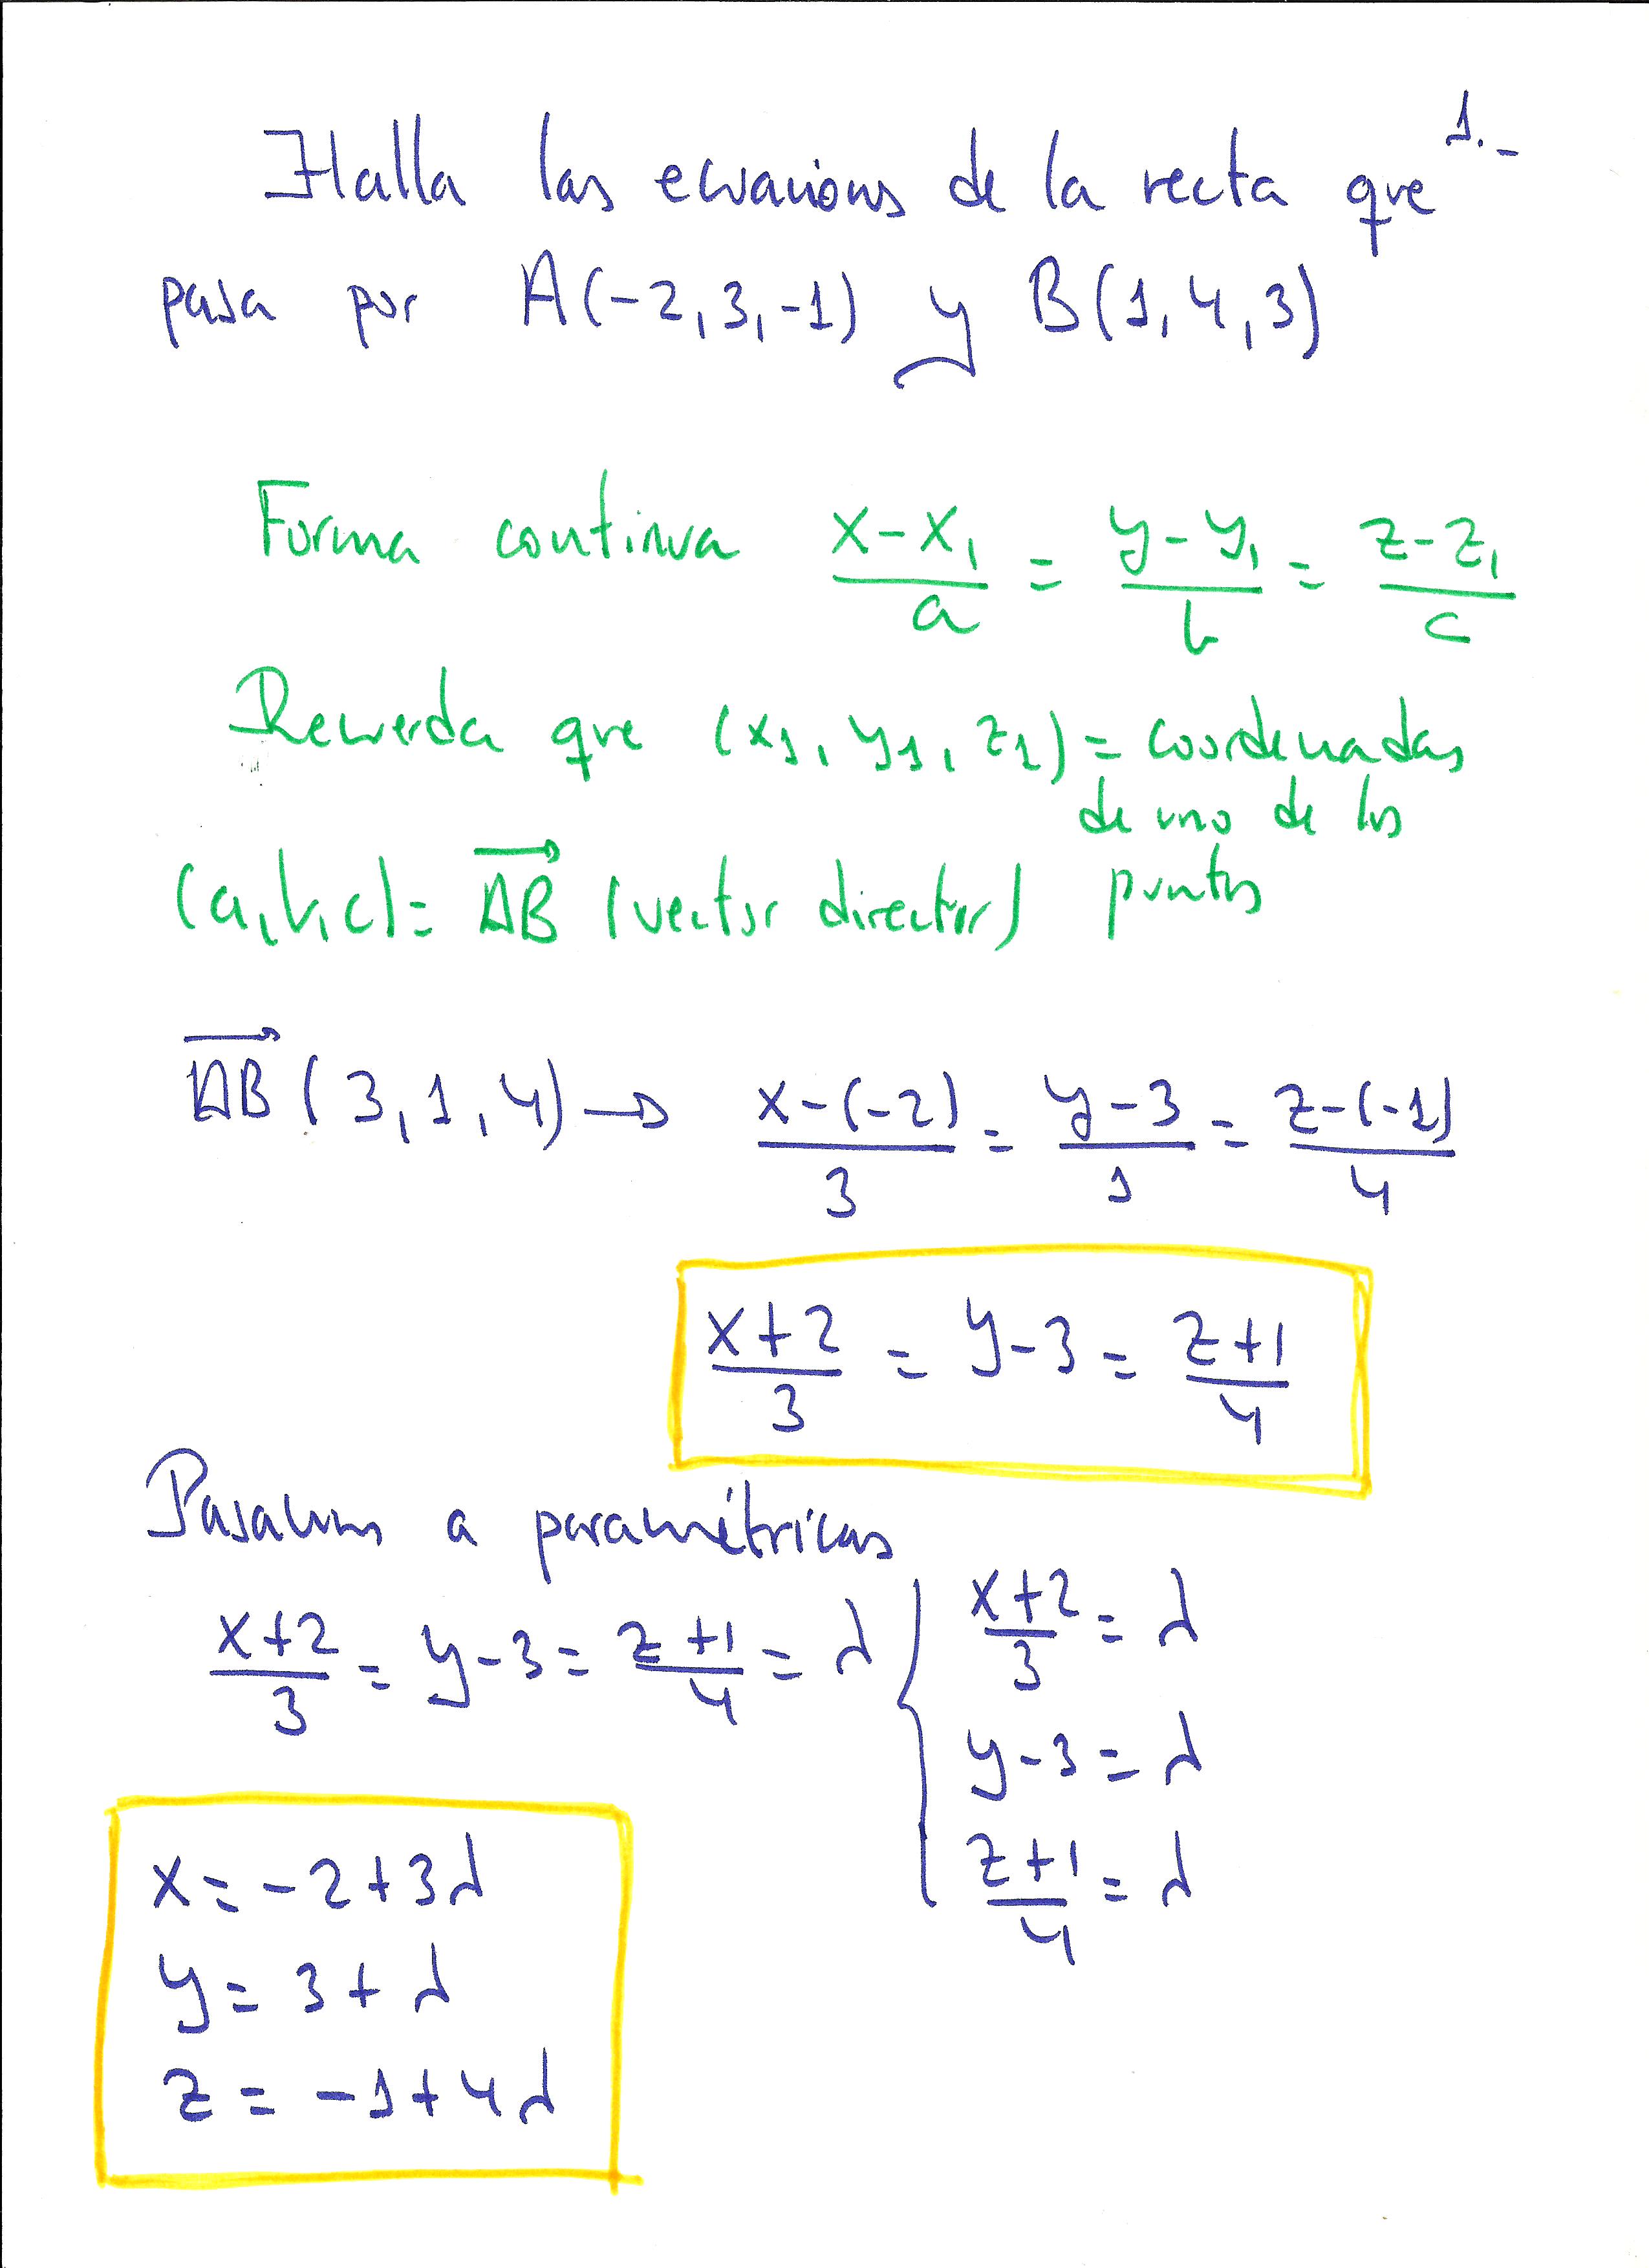 1.-
Halla las ecuaciones de la recta que
pasa por A(-2,3,-1) y B(1,4,3)
Forma continua (x-x₁)/a = (y-y₁)/b = (z-z₁)/c
Recuerda que (x₁, y₁, z₁) = coordenadas
de uno de los
puntos
(a,b,c) = \overrightarrow{AB} (vector director)
\overrightarrow{AB} (3,1,4) → (x-(-2))/3 = (y-3)/1 = (z-(-1))/4
(x+2)/3 = y-3 = (z+1)/4
Pasamos a paramétricas
(x+2)/3 = y-3 = (z+1)/4 = λ
{ (x+2)/3 = λ
y-3 = λ
(z+1)/4 = λ
x = -2+3λ
y = 3+λ
z = -1+4λ